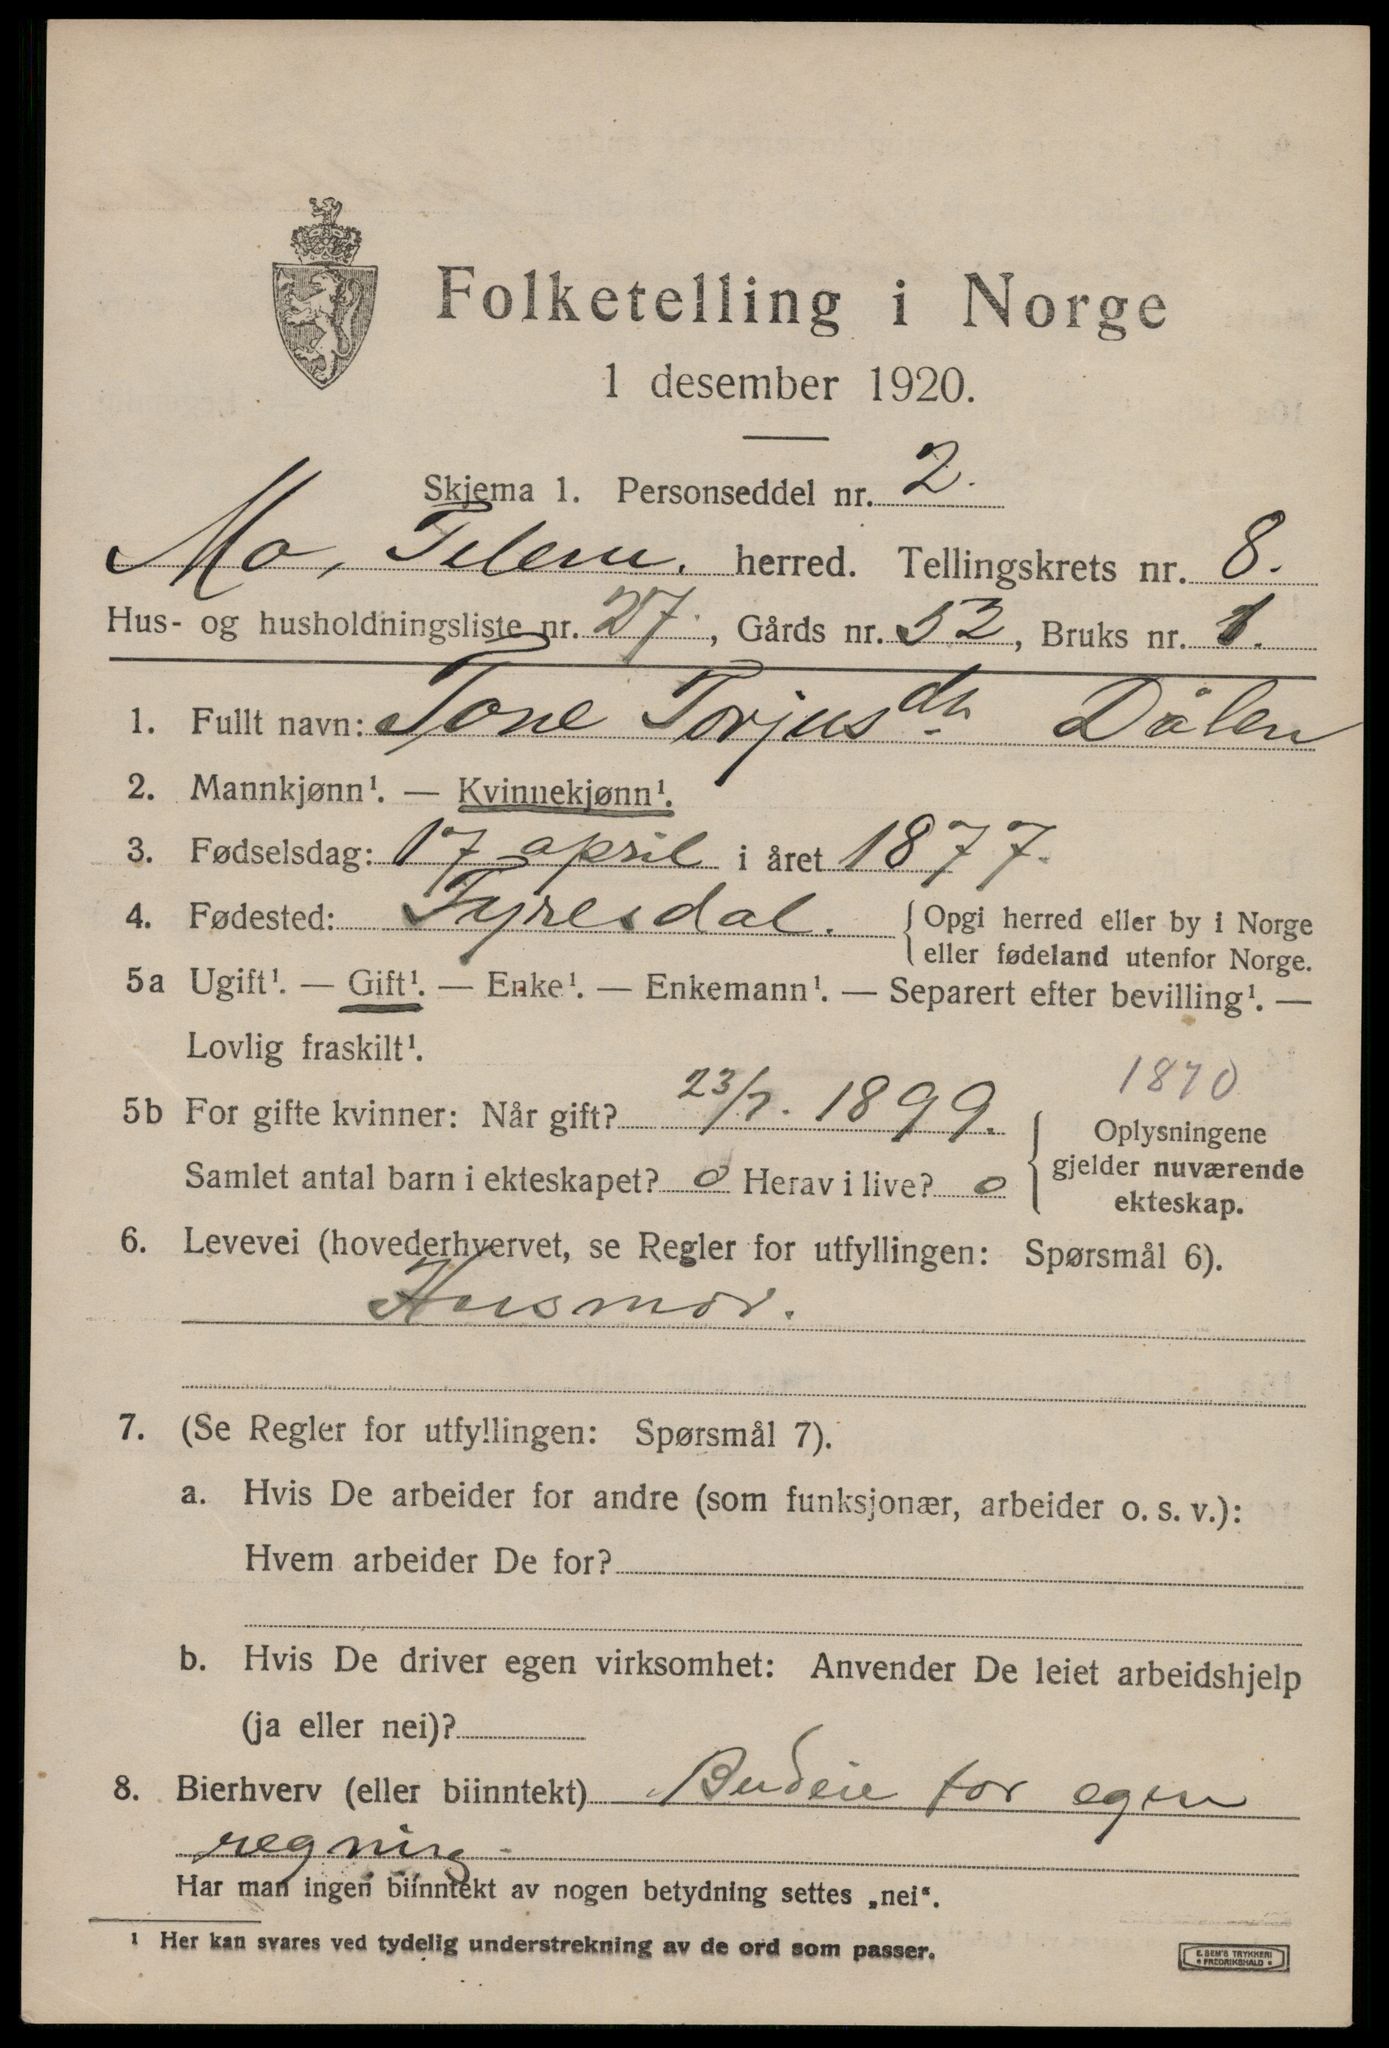 Folketelling i Norge
1 desember 1920.
Skjema 1. Personseddel nr. 2.
Mo, Telem. herred. Tellingskrets nr. 8.
Hus- og husholdningsliste nr. 27., Gårds nr. 53, Bruks nr. 1.
1. Fullt navn: Tone Torjusdtr. Dålen
2. Mannkjønn¹. — Kvinnekjønn¹.
3. Fødselsdag: 17 april i året 1877.
4. Fødested: Fyresdal. { Opgi herred eller by i Norge
eller fødeland utenfor Norge.
5a Ugift¹. — Gift¹. — Enke¹. — Enkemann¹. — Separert efter bevilling¹. —
Lovlig fraskilt¹.
1870
5b For gifte kvinner: Når gift? 23/7. 1899. { Oplysningene
gjelder nuværende
ekteskap.
Samlet antal barn i ekteskapet? 0 Herav i live? 0
6. Levevei (hovederhvervet, se Regler for utfyllingen: Spørsmål 6).
Husmor.
7. (Se Regler for utfyllingen: Spørsmål 7).
a. Hvis De arbeider for andre (som funksjonær, arbeider o. s. v.):
Hvem arbeider De for?
b. Hvis De driver egen virksomhet: Anvender De leiet arbeidshjelp
(ja eller nei)?
8. Bierhverv (eller biinntekt) Budeie for egen
regning.
Har man ingen biinntekt av nogen betydning settes „nei“.
¹ Her kan svares ved tydelig understrekning av de ord som passer.
E. SEM'S TRYKKERI
FREDRIKSHALD